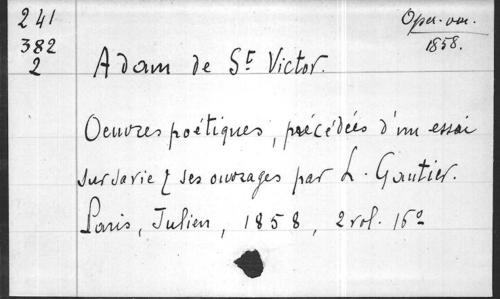 241
382
2
Oper. var.
1858.
Adam de St Victor.
Oeuvres poétiques, précédées d'un essai
sur sa vie & ses ouvrages par L. Gautier.
Paris, Julien, 1858, 2 vol. 16o